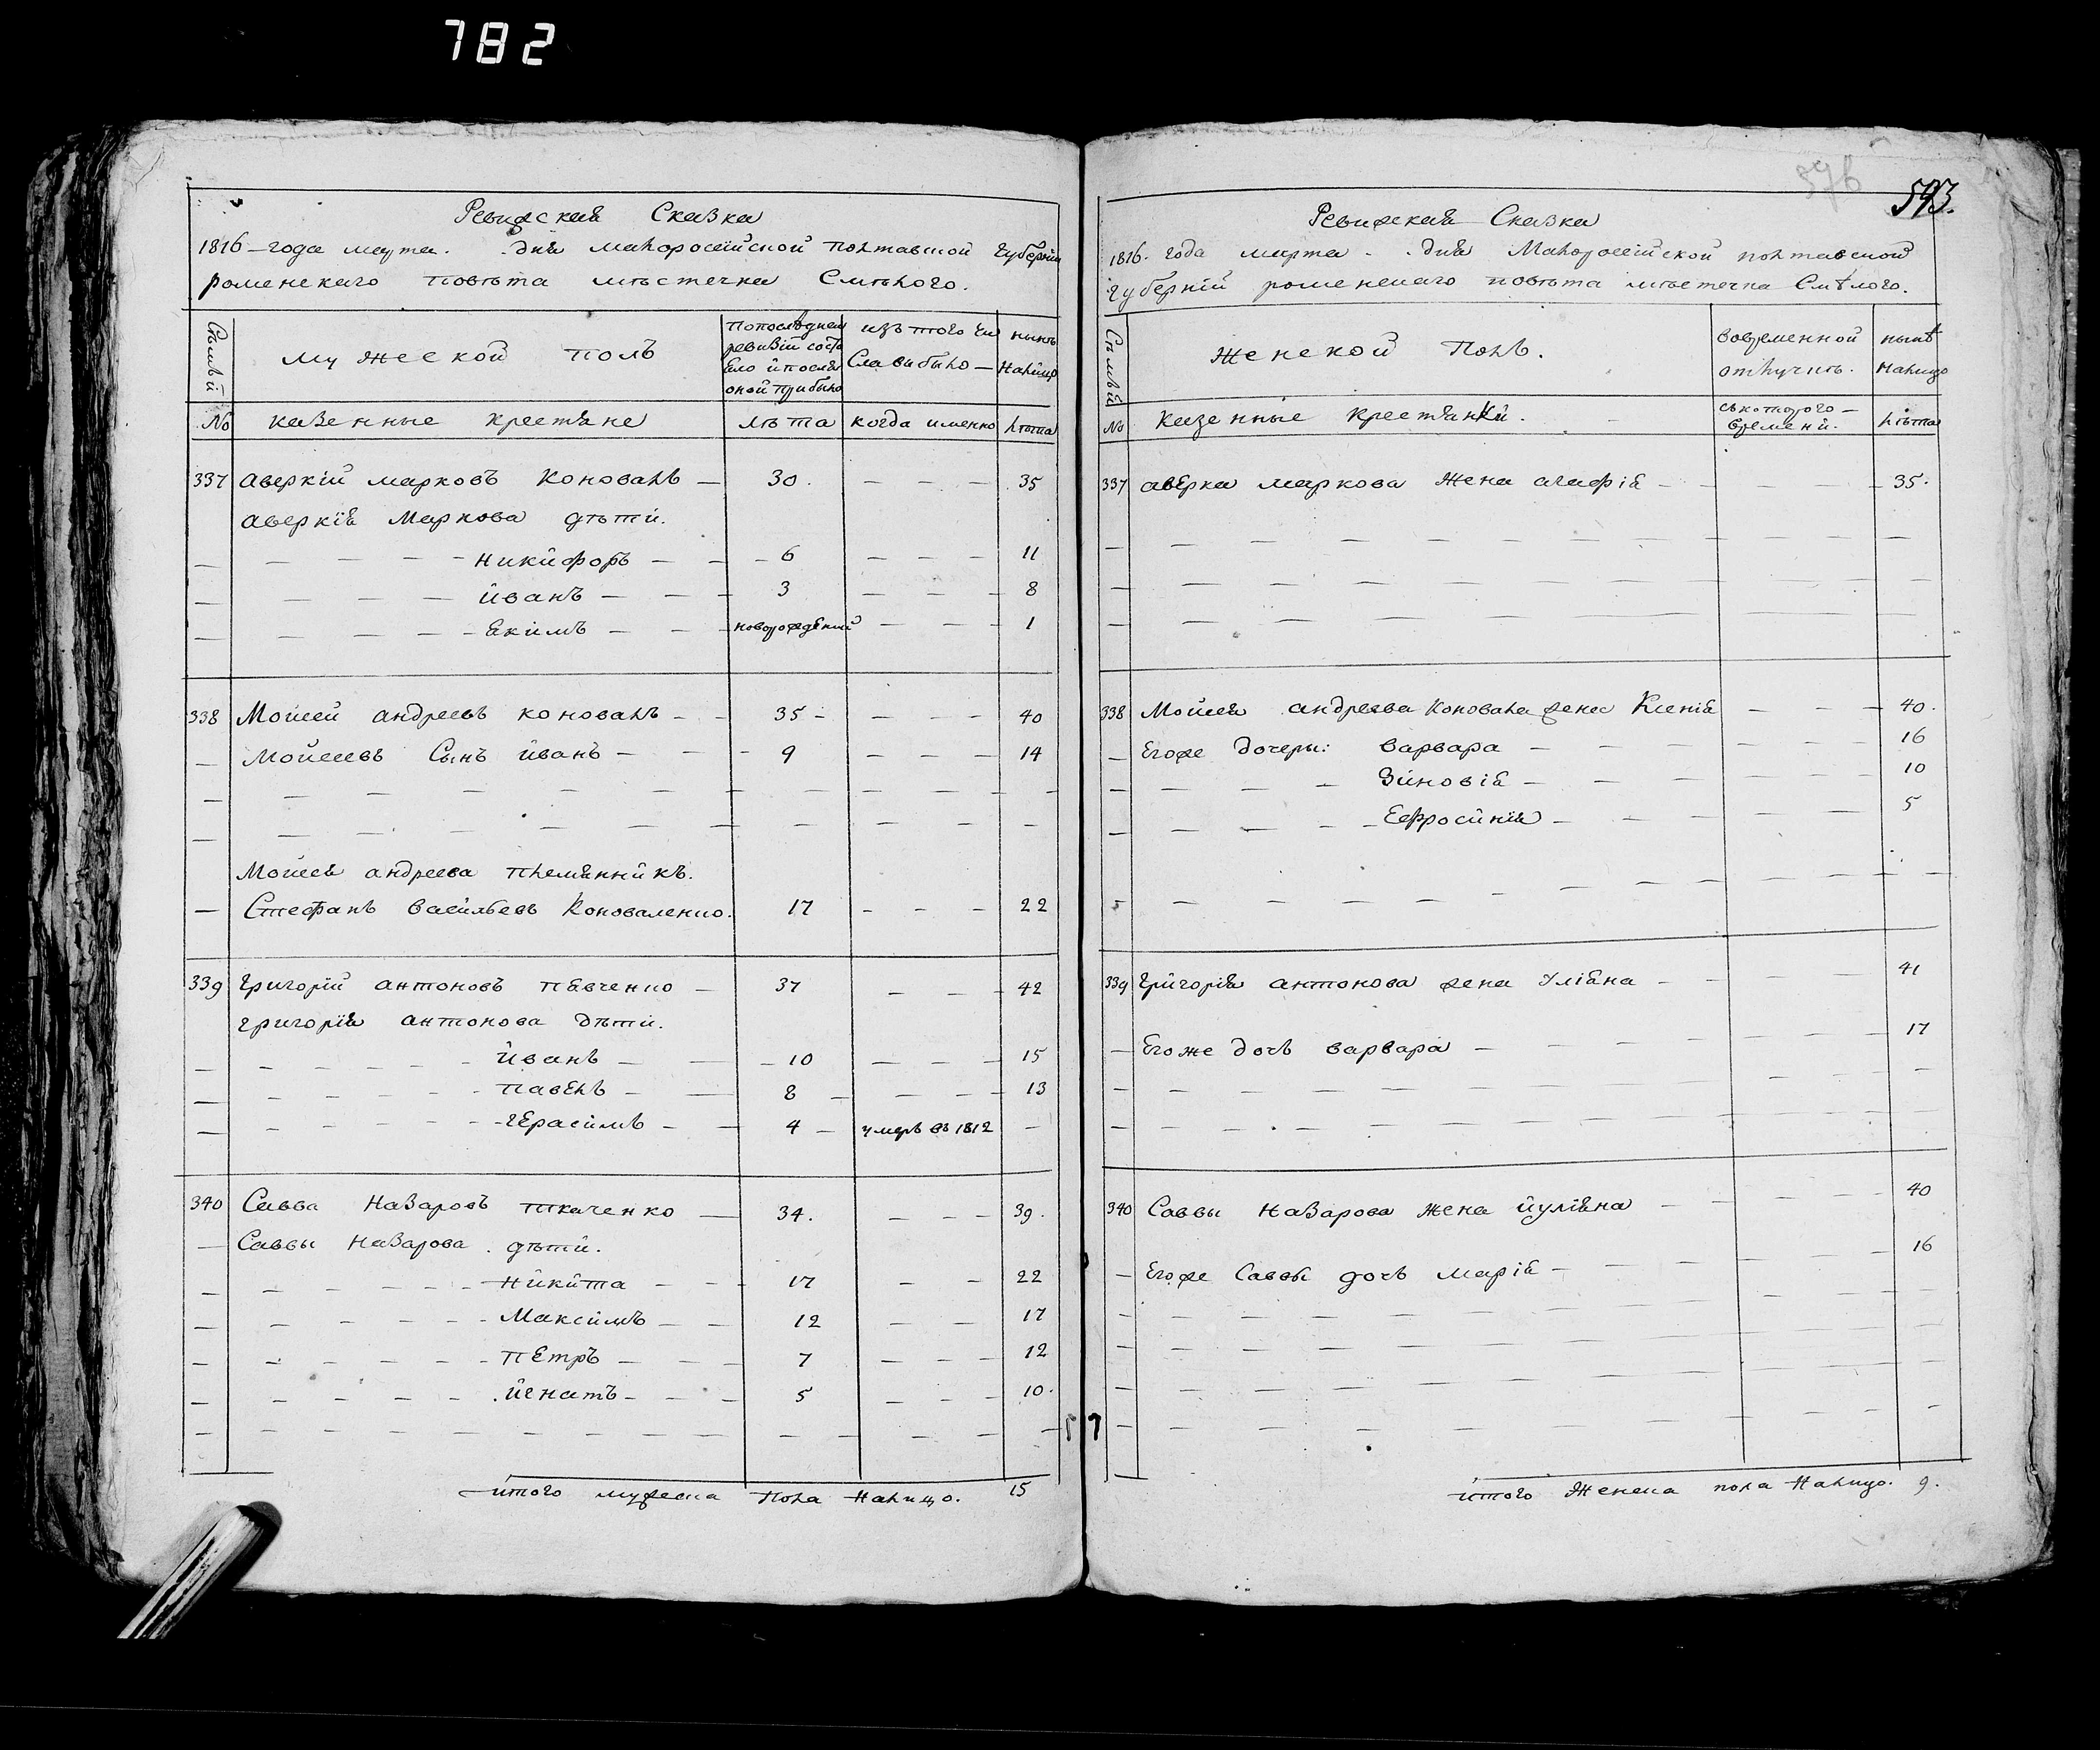 782
Ревижская Сказка
1816 – года марта . дня малоросейской полтавской губерній
роменскаго повѣта мѣстечка Смѣлого.
Сѣмьей
мужеской полъ
попослѣдней
ревизій состо
яло йпослѣ
оной прибыло
изъ того чи
сла выбыло —
нынѣ
налицо
№ казенные крестяне лѣта когда именно лѣта
337 аверкій марковъ Коновалъ — 30. — — — 35
аверкія Маркова дѣти.
— Никифоръ — 6 — — — 11
— йванъ — 3 — — — 8
— якимъ — новорожденій — — — 1
338 Мойсей андреевъ коновалъ — 35 — — — — 40
— Мойсеевъ Сынъ йванъ — 9 — — — 14
Мойсея андреева племянникъ.
— Стефанъ васильевъ Коноваленко. 17 — — — 22
339 Григорій антоновъ пявченко — 37 — — — 42
григорія антонова дѣти.
— йванъ — 10 — — — 15
— павелъ — 8 — — — 13
— герасимъ — 4 — умеръ въ 1812 —
340 Савва назаровъ ткаченко — 34. — — — 39.
— Саввы назарова дѣти.
— никита — 17 — — 22
— Максимъ — 12 — — 17
— петръ — 7 — — — 12
— йгнатъ — 5 — — — 10.
итого мужеска пола налицо. 15
596
593.
Ревижская Сказка
1816. года марта . дня Малоросейской полтавской
губерній роменскаго повѣта мѣстечка Смѣлого.
Сѣмьей
женской полъ.
вовременной
отлучкѣ.
нынѣ
налицо
№ казенные крестянки.
съкоторого —
времени.
лѣта
337 аверка маркова жена агафія — — — 35.
338 Мойсея андреева коновала жена Ксенія — — — 40.
— Егоже дочеры: варвара — — — 16
— Зиновія — — — 10
— Ефросинія — — — 5
339 Григорія антонова жена Уляна — — — 41
— Егоже дочь варвара — — — 17
340 Саввы назарова жена йуліяна — — — 40
— Егоже Саввы дочь марія — — — 16
итого женска пола налицо. 9.